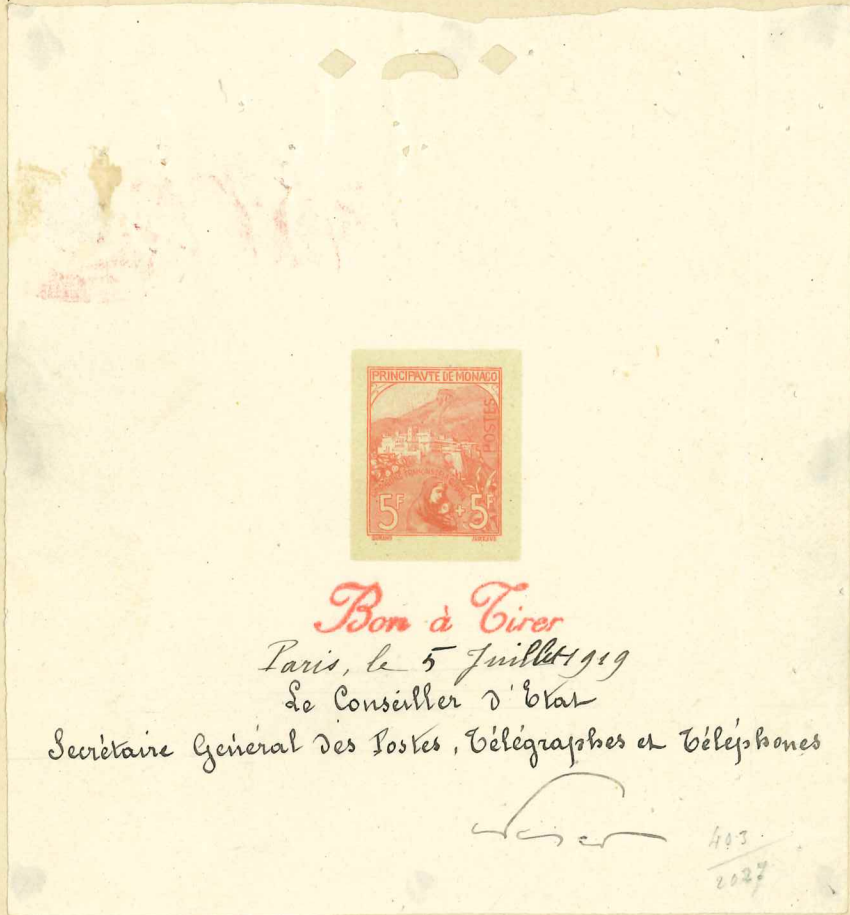 PRINCIPAVTE DE MONACO
POSTES
5F +5F
Bon à Tirer
Paris, le 5 Juillet 1919
Le Conseiller d'Etat
Secrétaire Général des Postes, Télégraphes et Téléphones
403
2027